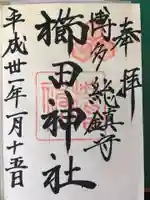 奉拝
博多総鎮守
櫛田神社
平成卅一年一月十五日